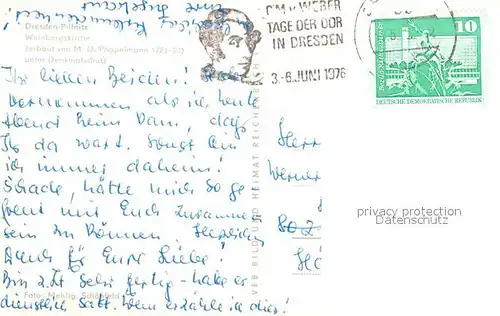 Dresden-Pillnitz
Weinbergkirche
(erbaut von M. D. Pöppelmann 1723-27)
unter Denkmalschutz
C.M.v.WEBER
TAGE DER DDR
IN DRESDEN
3.-6.JUNI 1976
10
DEUTSCHE DEMOKRATISCHE REPUBLIK
Ihr lieben Beiden!
vernommen als ich heute
Abend heim kam, dass
Ihr da wart. Sonst bin
ich immer daheim!
Schade, hätte mich so ge
freut mit Euch zusammen
sein zu können. Herzlichen
Dank für Eure Liebe!
Bin z.Zt sehr fertig - habe es
dienstlich satt. Wem erzähle ich dies!
Herr
Werner
802
privacy protection
Datenschutz
VEB BILD UND HEIMAT REICHENBACH
Foto: Mehlig, Schönfeld